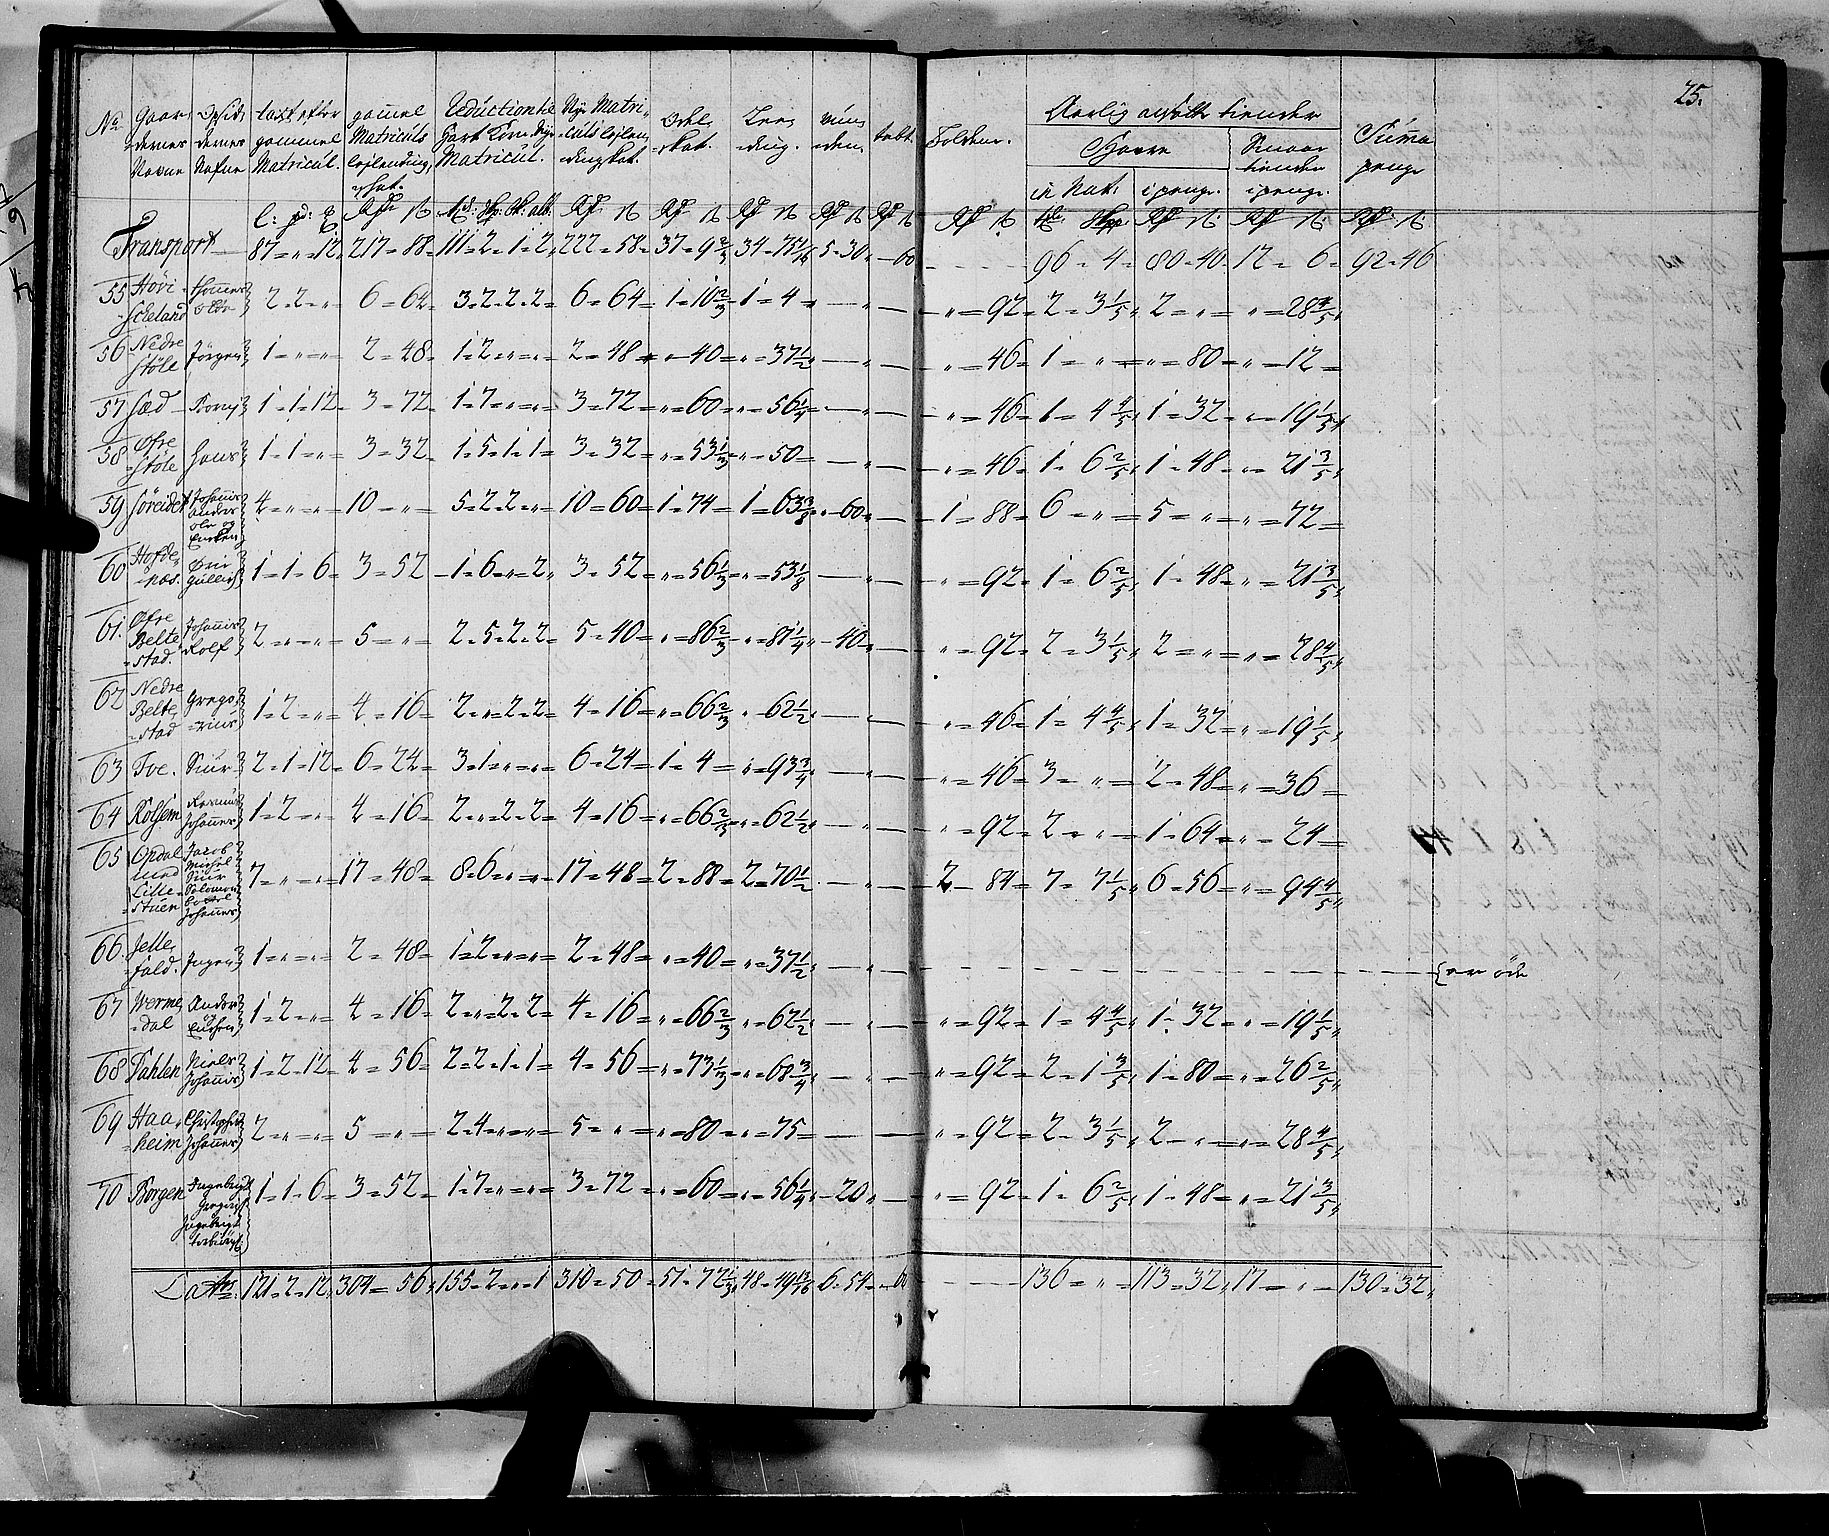 25.
No Gaardernes Navne Opsiddernes Nafne taxt efter gammel Matricul. gammel Matriculs Reduction til Nye Matriculs Leeding. Foldene. Aarlig Tiender Summa penge
Korn Smaae tiender
in Nat: i penge. i penge.
Transport 87 = „ = 12 217 = 88 111 = 2 = 1 = 2 222 = 58 37 = 9 2/3 34 = 75 5 = 30 60 96 = 4 80 = 40 12 = 6 92 = 46
55 Hovi-Scheland 2 = 2 = „ 6 = 64 3 = 2 = 2 = 2 6 = 64 1 = 10 2/3 1 = 4 „ = 92 2 = 3 1/5 2 = „ „ = 28 4/5
56 Nedre Støle Jørgen 1 = „ = „ 2 = 48 1 = 2 = „ = „ 2 = 48 „ = 40 „ = 37 1/2 „ = 46 1 = „ „ = 80 „ = 12
57 Sæd 1 = 1 = 12 3 = 72 1 = 7 = „ = „ 3 = 72 „ = 60 „ = 56 1/4 „ = 46 1 = 4 4/5 1 = 32 „ = 19 1/5
58 Øfre Støle Hans 1 = 1 = „ 3 = 32 1 = 5 = 1 = 1 3 = 32 „ = 53 1/3 „ = 50 „ = 46 1 = 6 2/5 1 = 48 „ = 21 3/5
59 Søreidet Johannes Anders Ole og Enken 4 = „ = „ 10 = „ 5 = 2 = 2 = „ 10 = 60 1 = 74 1 = 63 3/8 „ = 60 1 = 88 6 = „ 5 = „ „ = 72
60 1 = 1 = 6 3 = 52 1 = 6 = „ = 2 3 = 52 „ = 56 1/3 „ = 53 1/8 „ = 92 1 = 6 2/5 1 = 48 „ = 21 3/5
61. Øfre Beltestad. Johannis Rolf 2 = „ = „ 5 = „ 2 = 5 = 2 = 2 5 = 40 „ = 86 2/3 „ = 81 1/4 „ = 40 „ = 92 2 = 3 1/5 2 = „ „ = 28 4/5
62 Nedre Beltestad Gregorius 1 = 2 = „ 4 = 16 2 = „ = 2 = 2 4 = 16 „ = 66 2/3 „ = 62 1/2 „ = 46 1 = 4 4/5 1 = 32 „ = 19 1/5
63 Toe. Siur 2 = 1 = 12 6 = 24 3 = 1 = „ = „ 6 = 24 1 = 4 „ = 93 3/4 „ = 46 3 = „ 2 = 48 „ = 36
64 Rolsem Rasmus Johannes 1 = 2 = „ 4 = 16 2 = „ = 2 = 2 4 = 16 „ = 66 2/3 „ = 62 1/2 „ = 92 2 = „ 1 = 64 „ = 24
65 Opdal med Lillestuen Jacob Michel Siur Salomon Johannes 7 = „ = „ 17 = 48 8 = 6 = „ = „ 17 = 48 2 = 88 2 = 70 1/2 2 = 84 7 = 7 1/5 6 = 56 „ = 94 4/5
66. Jelle-fald. Ingen 1 = „ = „ 2 = 48 1 = 2 = „ = „ 2 = 48 „ = 40 „ = 37 1/2 er øde
67 Wermedal Anders og Enchen 1 = 2 = „ 4 = 16 2 = „ = 2 = 2 4 = 16 „ = 66 2/3 „ = 62 1/2 „ = 92 1 = 4 4/5 1 = 32 „ = 19 1/5
68 Dahlen Niels Johannis 1 = 2 = 12 4 = 56 2 = 2 = 1 = 1 4 = 56 „ = 73 1/3 „ = 68 3/4 „ = 92 2 = 1 3/5 1 = 80 „ = 26 2/5
69 Haaheim Christopher Johannes 2 = „ = „ 5 = „ 2 = 4 = „ = „ 5 = „ „ = 80 „ = 75 „ = 92 2 = 3 1/5 2 = „ „ = 28 4/5
70 Borgen 1 = 1 = 6 3 = 52 1 = 7 = „ = „ 3 = 72 „ = 60 „ = 56 1/4 „ = 20 „ = 92 1 = 6 2/5 1 = 48 „ = 21 3/5
121 = 2 = 12 304 = 56 155 = 2 = „ = 1 310 = 50 51 = 72 1/3 48 = 49 6 = 54 60 136 = „ 113 = 32 17 = „ 130 = 32